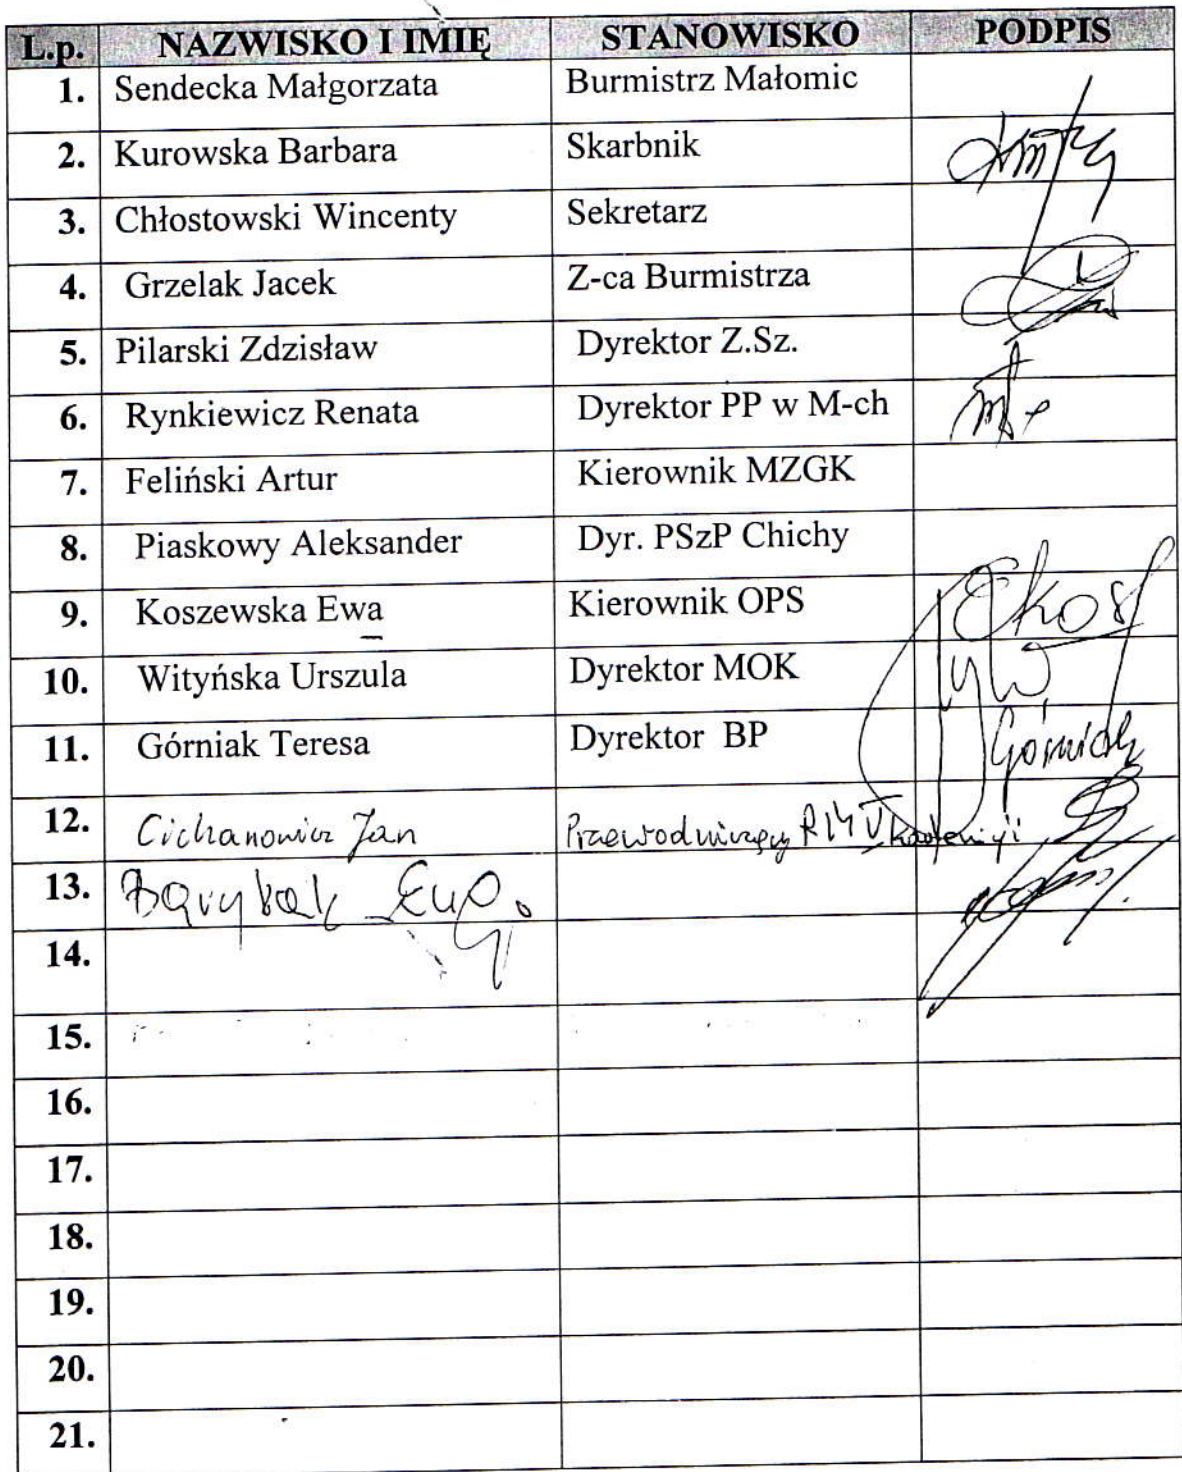 L.p. NAZWISKO I IMIĘ STANOWISKO PODPIS
1. Sendecka Małgorzata Burmistrz Małomic
2. Kurowska Barbara Skarbnik
3. Chłostowski Wincenty Sekretarz
4. Grzelak Jacek Z-ca Burmistrza
5. Pilarski Zdzisław Dyrektor Z.Sz.
6. Rynkiewicz Renata Dyrektor PP w M-ch
7. Feliński Artur Kierownik MZGK
8. Piaskowy Aleksander Dyr. PSzP Chichy
9. Koszewska Ewa Kierownik OPS
10. Wityńska Urszula Dyrektor MOK
11. Górniak Teresa Dyrektor BP Górniak
12. Cichanowicz Jan Przewodniczący RM V kadencji
13.
14.
15.
16.
17.
18.
19.
20.
21.